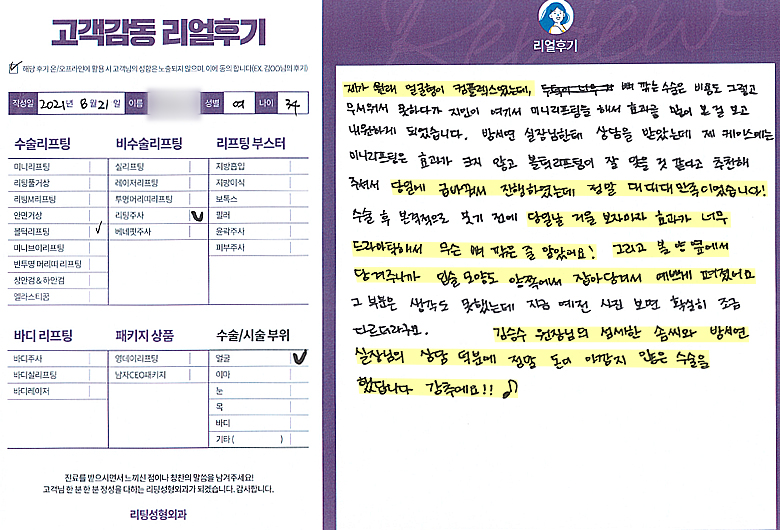 고객감동 리얼후기
해당 후기 온/오프라인에 활용 시 고객님의 성함은 노출되지 않으며, 이에 동의 합니다(EX. 김OO님의 후기)
작성일 2021년 8월 21일 이름 성별 여 나이 34
수술리프팅
미니리프팅
리팅풀거상
리팅M리프팅
안면거상
볼턱리프팅
미니브이리프팅
반투명 머리띠 리프팅
상안검 & 하안검
엘라스티꿈
비수술리프팅
실리프팅
레이저리프팅
투명머리띠리프팅
리팅주사
베네핏주사
리프팅 부스터
지방흡입
지방이식
보톡스
필러
윤곽주사
피부주사
바디 리프팅
바디주사
바디실리프팅
바디레이저
패키지 상품
영데이리프팅
남자CEO패키지
수술/시술 부위
얼굴
이마
눈
목
바디
기타 ( )
진료를 받으시면서 느끼신 점이나 칭찬의 말씀을 남겨주세요!
고객님 한 분 한 분 정성을 다하는 리팅성형외과가 되겠습니다. 감사합니다.
리팅성형외과
Review
리얼후기
제가 원래 얼굴형이 컴플렉스였는데, 뼈 깎는 수술은 비용도 그렇고
무서워서 못하다가 지인이 여기서 미니리프팅을 해서 효과를 많이 본 걸 보고
내원하게 되었습니다. 방서연 실장님한테 상담을 받았는데 제 케이스에는
미니리프팅은 효과가 크지 않고 볼턱리프팅이 잘 맞을 것 같다고 추천해
주셔서 당일에 급바꿔서 진행하였는데 정말 대대대만족이었습니다!
수술 후 본격적으로 붓기 전에 당일날 거울 보자마자 효과가 너무
드라마틱해서 무슨 뼈 깎은 줄 알았어요! 그리고 볼 양 옆에서
당겨주니까 입술 모양도 양쪽에서 잡아당겨서 예쁘게 펴졌어요
그 부분은 생각도 못했는데 지금 예전 사진 보면 확실히 조금
다르더라구요. 김승수 원장님의 섬세한 솜씨와 방서연
실장님의 상담 덕분에 정말 돈이 아깝지 않은 수술을
했답니다 강추에요!! ♪